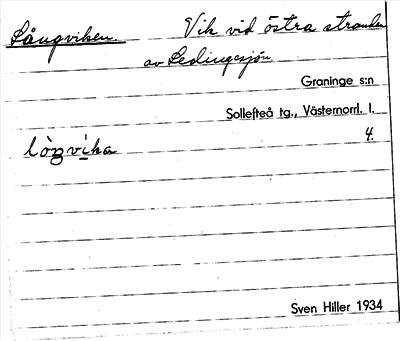 Långviken. Vik vid östra stranden
av Ledingesjön.
Graninge s:n
Sollefteå tg., Västernorrl. l.
4.
lòŋvìka
Sven Hiller 1934